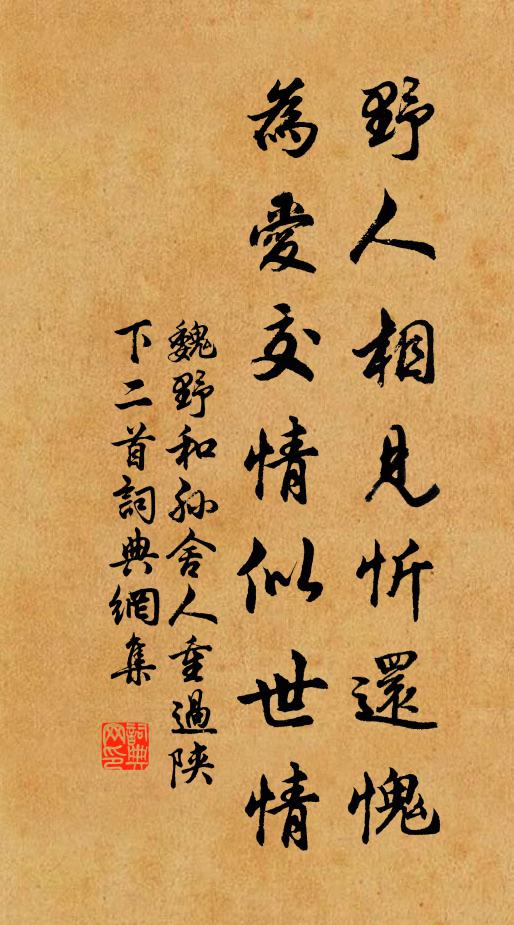 野人相見忻還愧
為愛交情似世情
魏野和孫舍人重過陝
下二首詞典網集
詞典
网印